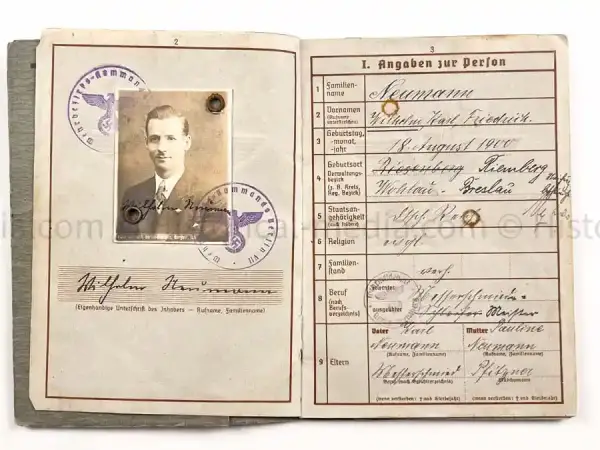 2
Wehrbezirks-Kommando
Wilhelm Neumann
Wehrbezirks-Kommando Berlin VII
Wilhelm Neumann
(Eigenhändige Unterschrift des Inhabers — Rufname, Familienname)
3
I. Angaben zur Person
1 Familien-
name
Neumann
2 Vornamen
(Rufname
unterstreichen)
Wilhelm, Karl, Friedrich
3 Geburtstag,
-monat,
-jahr
18. August 1900
4 Geburtsort
Verwaltungs-
bezirk
(z. B. Kreis,
Reg. Bezirk)
Riesenberg Riemberg
Wohlau - Breslau
5 Staatsan-
gehörigkeit
(auch frühere)
Dtsch. Reich
6 Religion
evgl.
7 Familien-
stand
verh.
8 Beruf
(nach
Berufs-
verzeichnis)
erlernter
ausgeübter
Meister
9 Eltern
Vater Karl
Neumann
(Rufname, Familienname)
Mutter Pauline
Neumann
(Rufname, Familienname)
Pfitzner
(wenn verstorben: † und Sterbejahr)
(wenn verstorben: † und Sterbejahr)